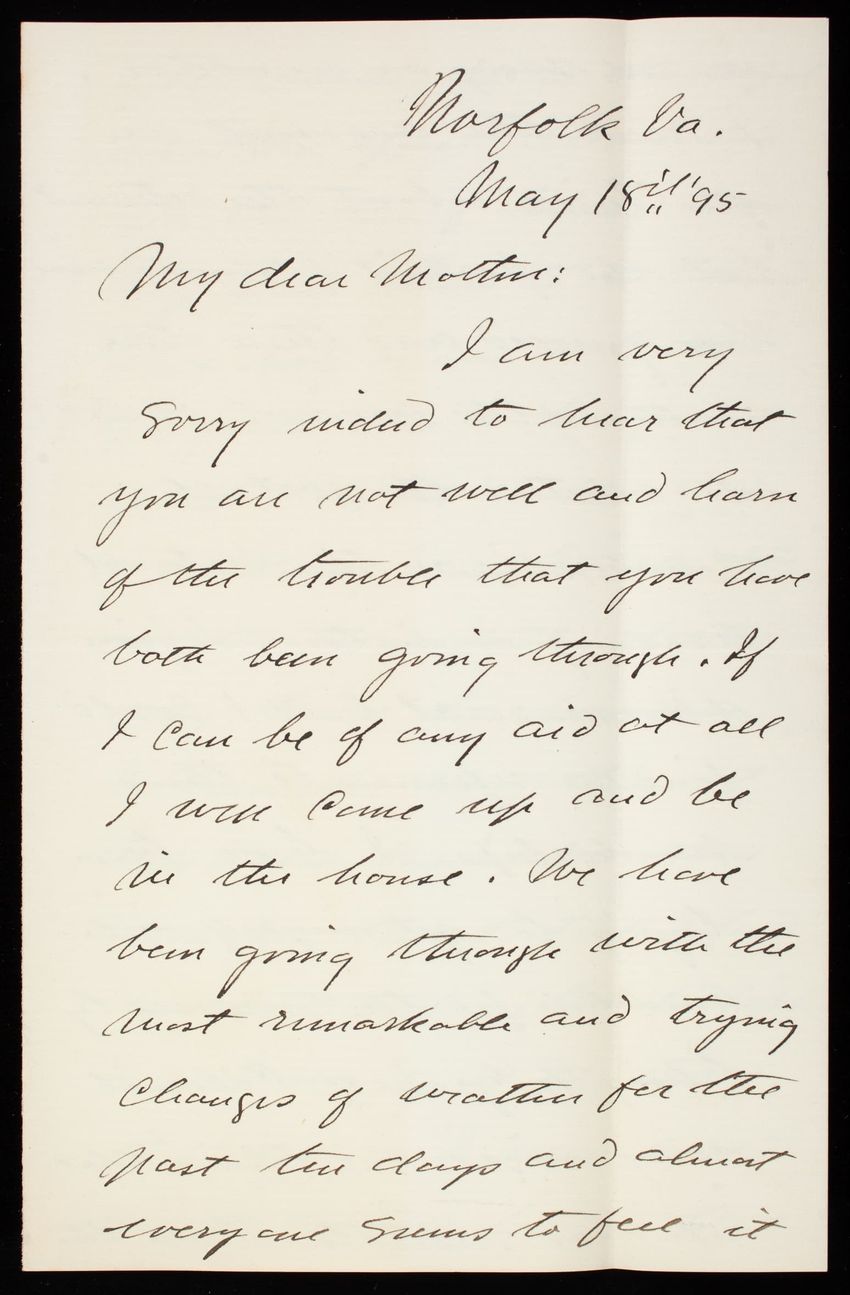 Norfolk Va.
May 18th '95
My dear Mother:
I am very
sorry indeed to hear that
you are not well and learn
of the trouble that you have
both been going through. If
I can be of any aid at all
I will come up and be
in the house. We have
been going through with the
most remarkable and trying
changes of weather for the
past ten days and almost
every one seems to feel it